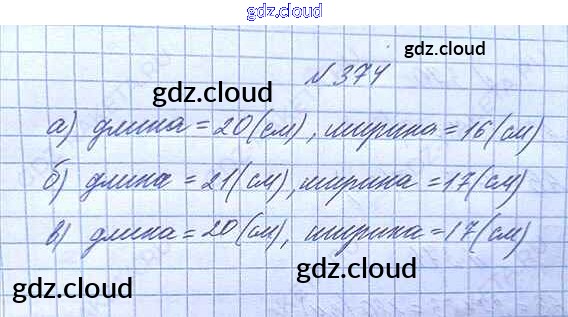 gdz.cloud
gdz.cloud
№ 374
gdz.cloud
а) длина = 20 (см), ширина = 16 (см)
gdz.cloud
б) длина = 21 (см), ширина = 17 (см)
в) длина = 20 (см), ширина = 17 (см)
gdz.cloud
gdz.cloud